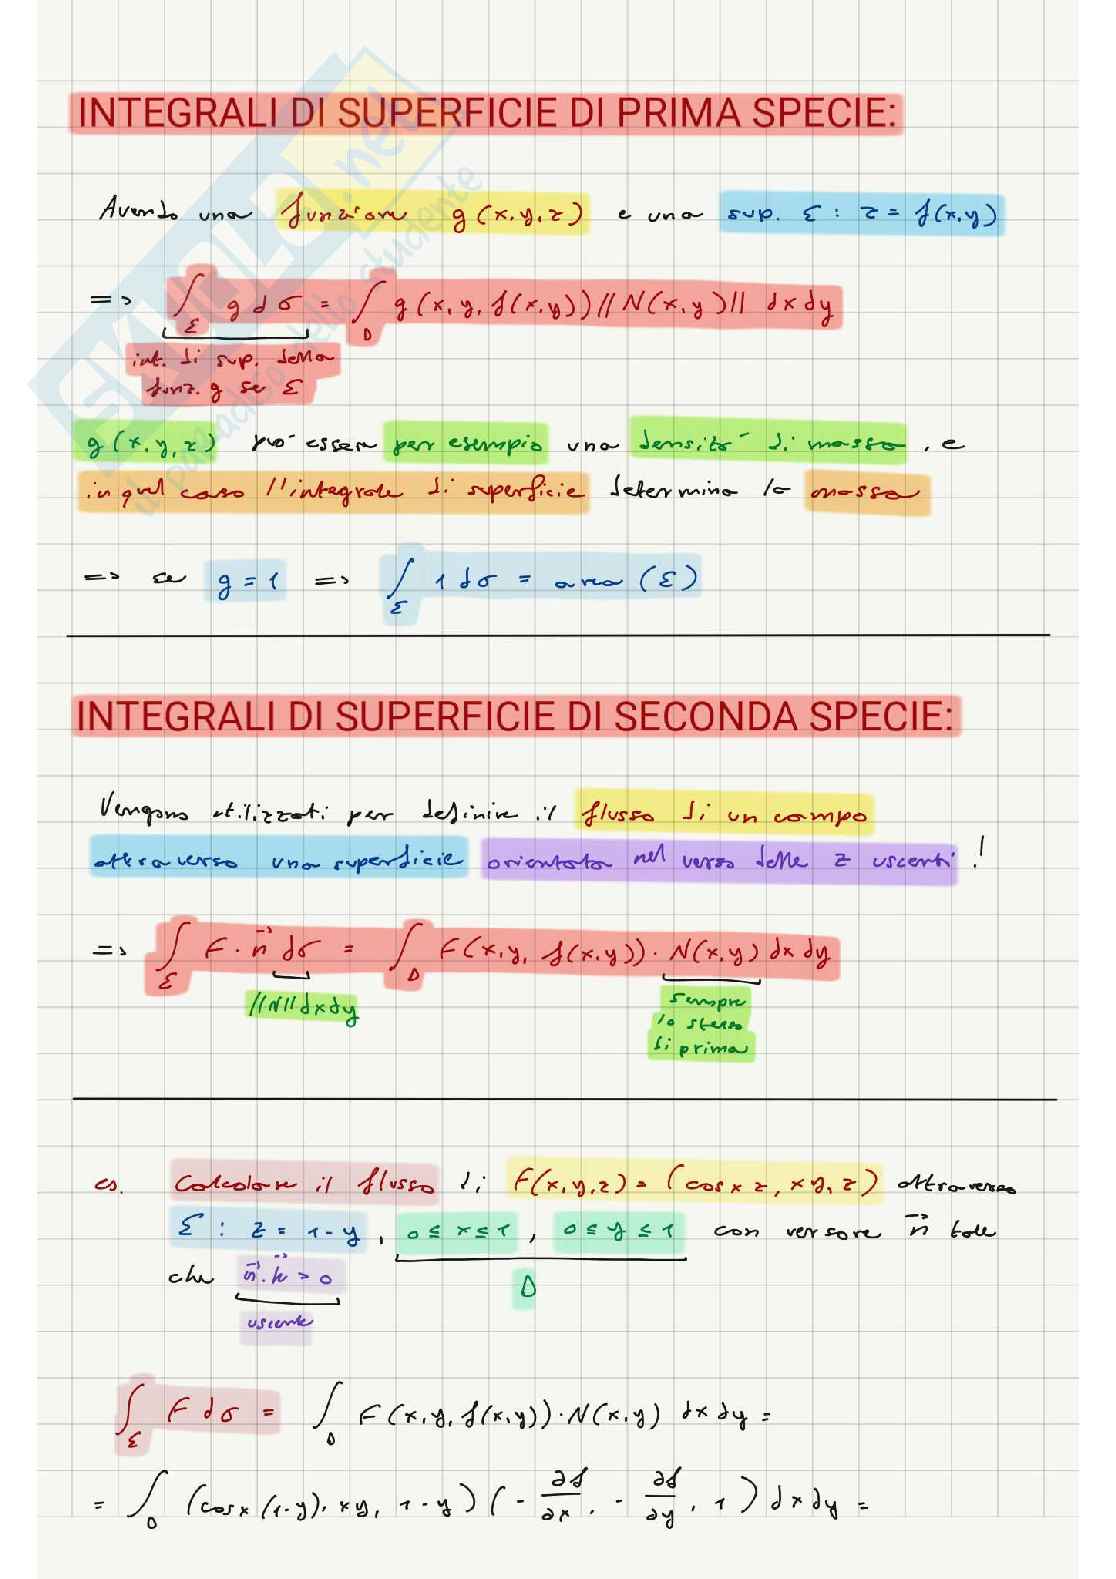 INTEGRALI DI SUPERFICIE DI PRIMA SPECIE:
Avendo una funzione g(x,y,z) e una sup. Σ : z = f(x,y)
=> ∫_Σ g dσ = ∫_D g(x,y,f(x,y)) //N(x,y)// dxdy
int. di sup. della
funz. g se Σ
g(x,y,z) può essere per esempio una densità di massa, e
in quel caso l'integrale di superficie determina la massa
=> se g=1 => ∫_Σ 1 dσ = area (Σ)
INTEGRALI DI SUPERFICIE DI SECONDA SPECIE:
Vengono utilizzati per definire il flusso di un campo
attraverso una superficie orientata nel verso delle z uscenti!
=> ∫_Σ F · n⃗ dσ = ∫_D F(x,y,f(x,y)) · N(x,y) dxdy
//N// dxdy
sempre
lo stesso
di prima
es. Calcolare il flusso di F(x,y,z) = (cosx z, xy, z) attraverso
Σ : z = 1-y, 0 ≤ x ≤ 1, 0 ≤ y ≤ 1 con versore n⃗ tale
che n⃗·k⃗ > 0
D
uscente
∫_Σ F dσ = ∫_D F(x,y,f(x,y)) · N(x,y) dxdy =
= ∫_D (cosx(1-y), xy, 1-y) (-∂f/∂x, -∂f/∂y, 1) dxdy =
SKUOLA.net
il paradiso dello studente